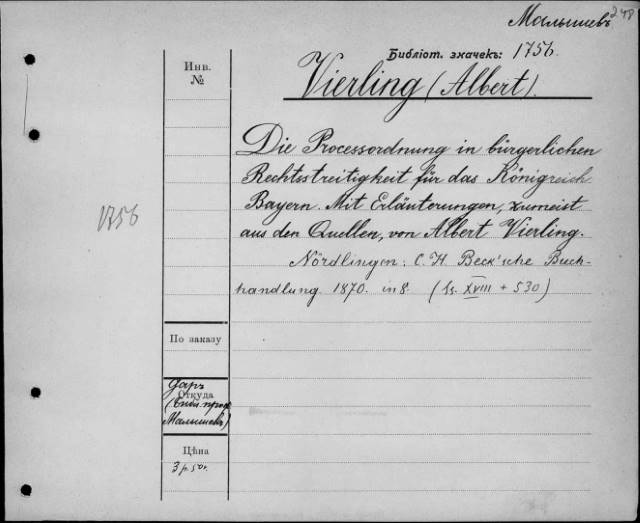 Малышевъ
248
Библіот. значекъ: 1756.
Инв.
№
Vierling (Albert).
Die Processordnung in bürgerlichen
Rechtsstreitigkeit für das Königreich
Bayern. Mit Erläuterungen, zumeist
aus den Quellen, von Albert Vierling.
Nördlingen: C. H. Beck'sche Buch-
handlung 1870. in 8. (Ss. XVIII + 530)
1756
По заказу
Даръ
Откуда
(Библ. проф.
Малышева)
Цѣна
3 р. 50 к.